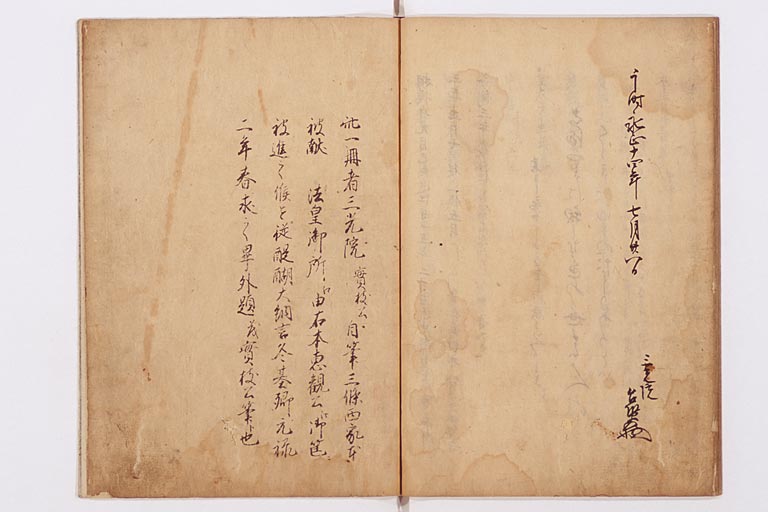 于時永正十四年七月廿八日
三光院
此一冊者三光院 實枝公 自筆三條西家本
被献 法皇御所 由右本恵観公御筐
被進之候を従醍醐大納言冬基卿元禄
二年春求之畢外題義實枝公筆也